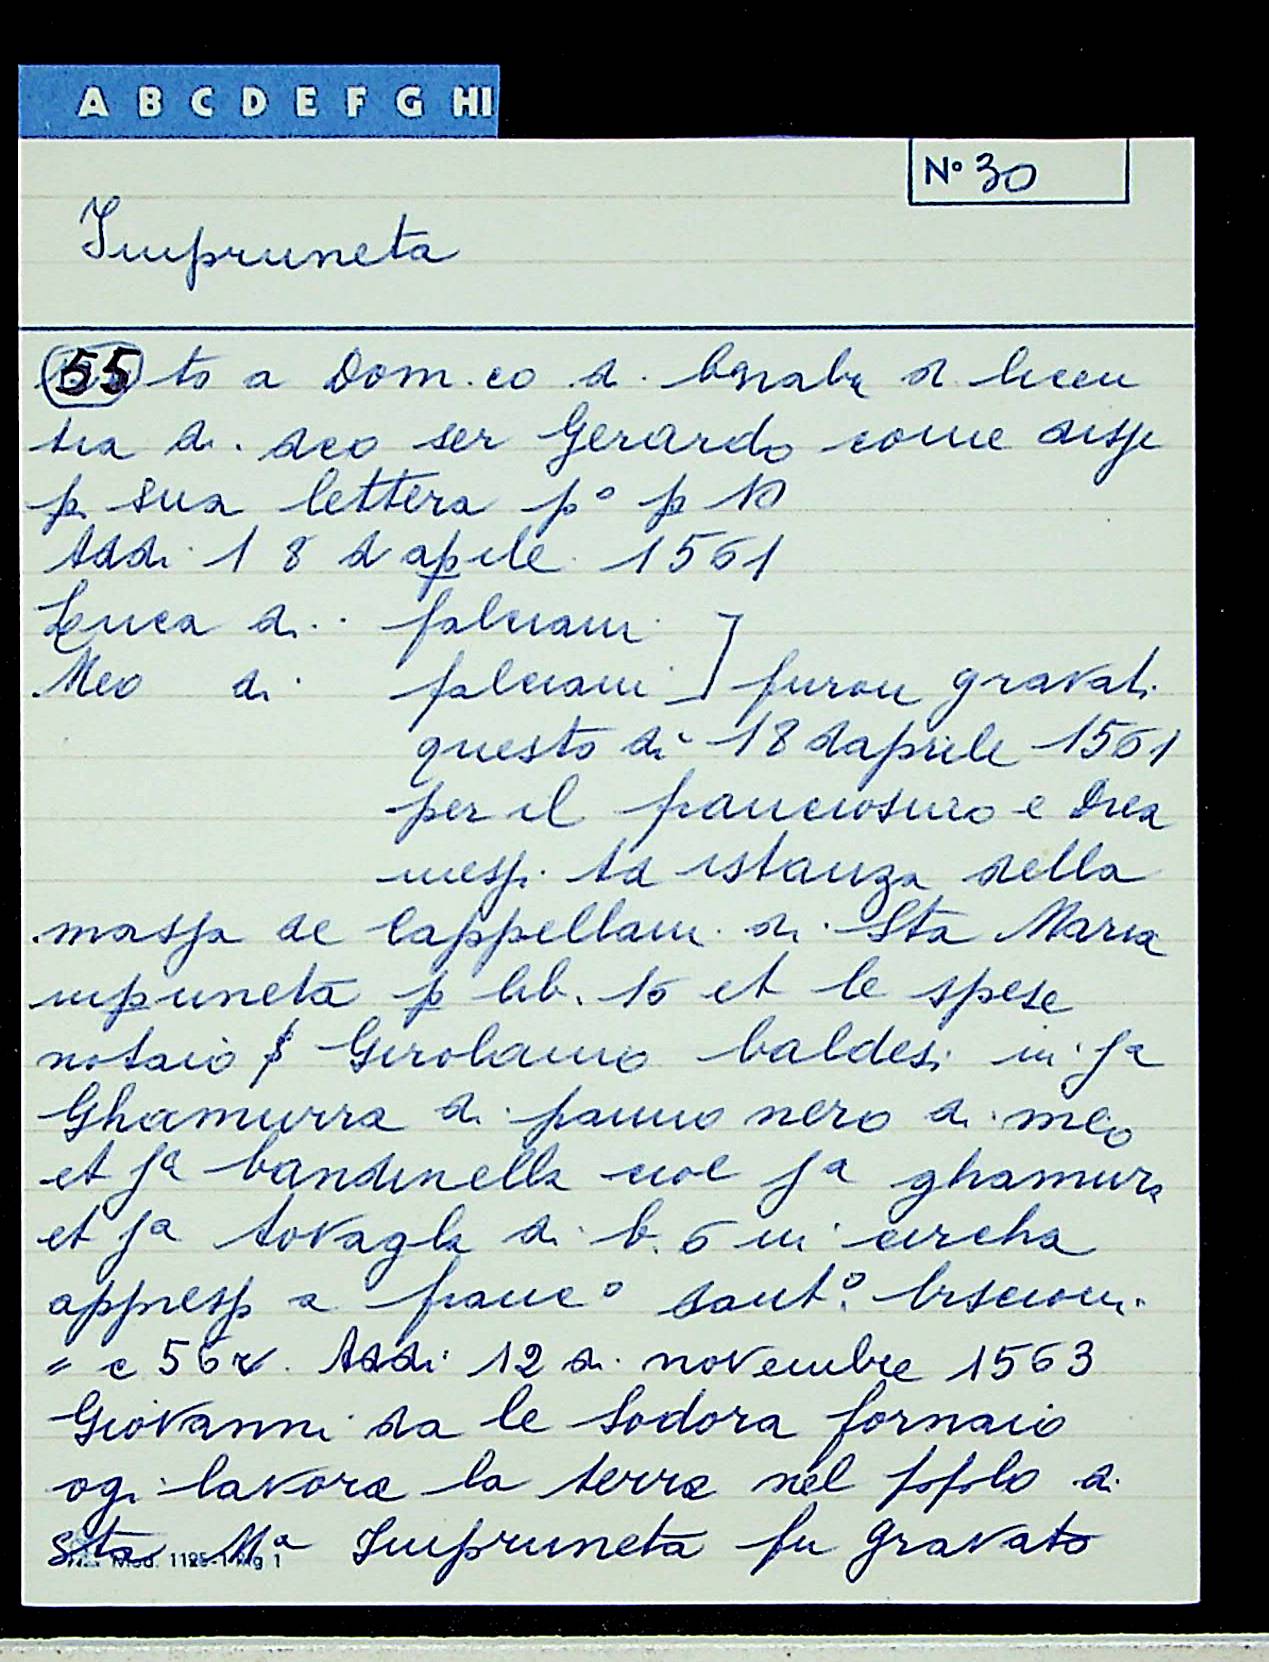 A B C D E F G HI
Nº 30
Impruneta
55 to a Dom.co d. bernaba d licen
tia di deo ser Gerardo come disse
p. sua lettera pº p 10
Addi 18 d aprile 1561
Luca di falciani
Meo di falciani ] furon gravati
questo dì 18 daprile 1561
per il franciosino e Drea
messi. Ad istanza della
massa de cappellani di Sta Maria
inpuneta p lib. 16 et le spese
notaio Girolamo baldesi in ja
Ghamurra di panno nero di meo
et ja bandinella cioe ja ghamura
et ja tovagla di b. 6 in circha
appresso a francº santº. briscioni
" c 56r. Addi 12 di novembre 1563
Giovanni da le Sodora fornaio
ogi lavora la terra nel popolo di
Sta Mª Impruneta fu gravato
Mod. 1125-1 Mg 1